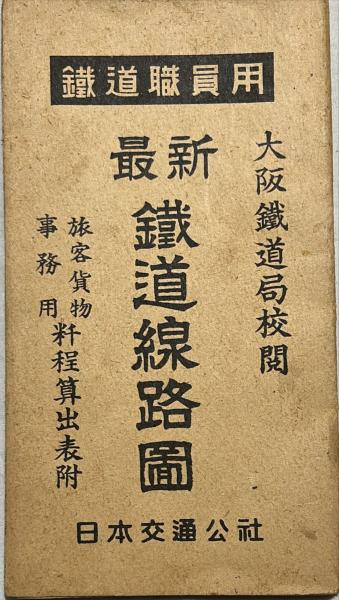 鐵道職員用
大阪鐵道局校閲
最新
鐵道線路圖
旅客貨物
事務用
粁程算出表附
日本交通公社